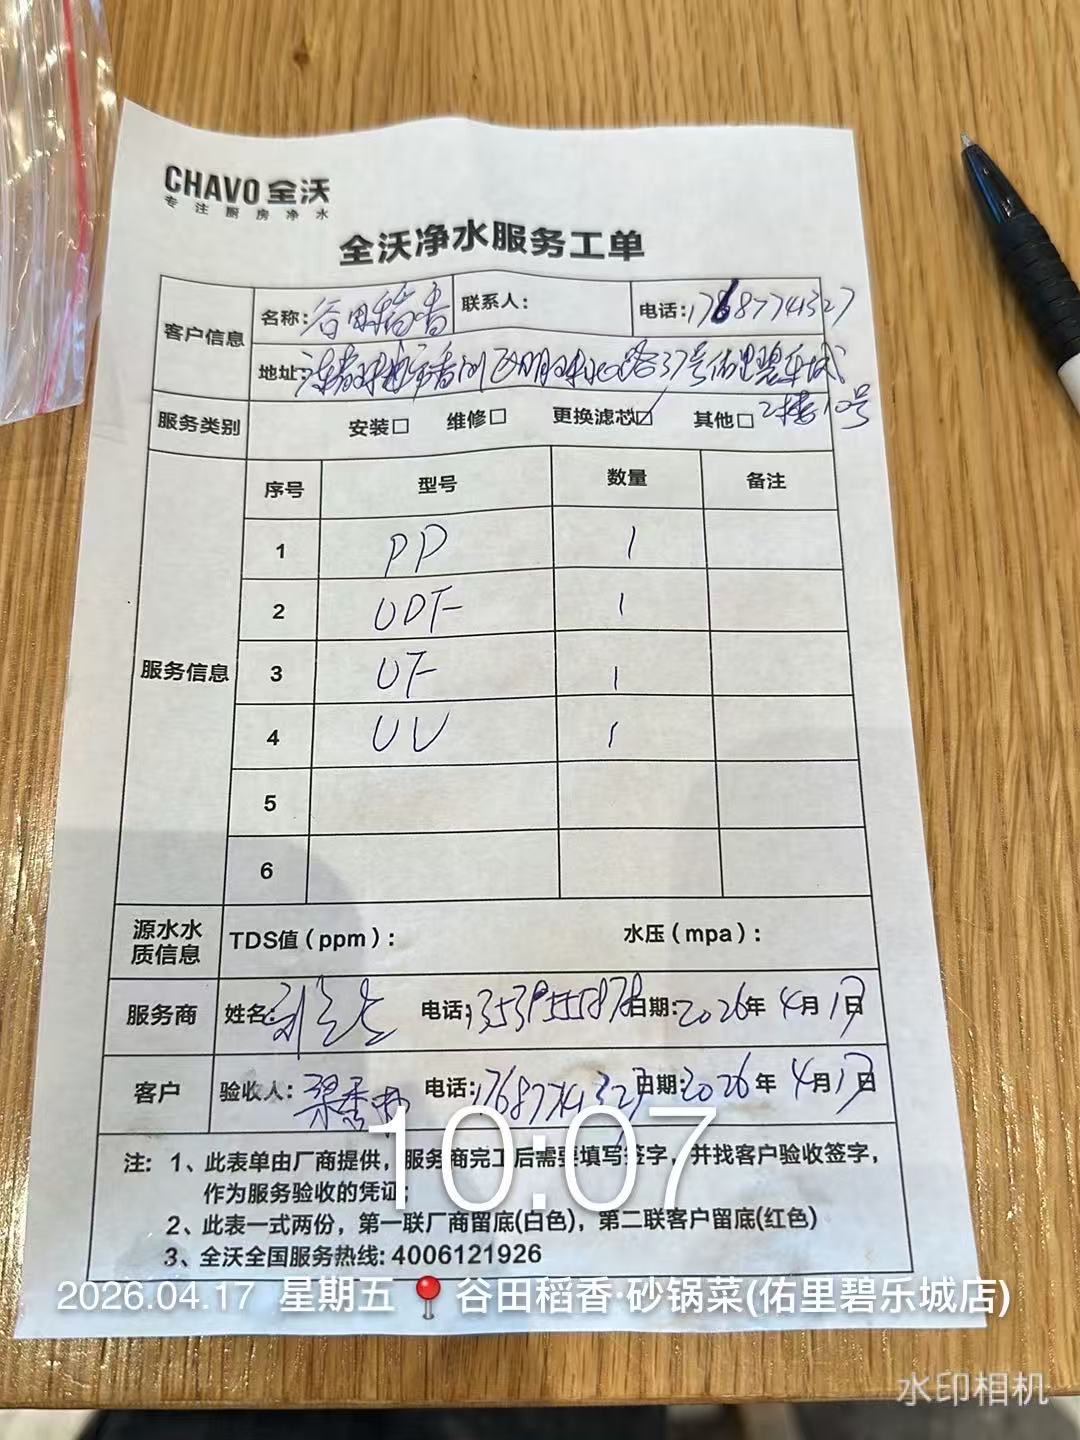 CHAVO 全沃
专注厨房净水
全沃净水服务工单
客户信息 名称：谷田稻香 联系人： 电话：17687741327
地址： 珠海市香洲区 37号佑里碧乐城
2楼10号
服务类别 安装□ 维修□ 更换滤芯☑ 其他□
服务信息 序号 型号 数量 备注
1 PP 1
2 UDF 1
3 UF 1
4 UV 1
5
6
源水水质信息 TDS值（ppm）： 水压（mpa）：
服务商 姓名： 电话： 日期：2026年4月17日
客户 验收人：梁秀 电话：17687741327 日期：2026年4月17日
注：1、此表单由厂商提供，服务商完工后需要填写签字，并找客户验收签字，
作为服务验收的凭证；
2、此表一式两份，第一联厂商留底(白色)，第二联客户留底(红色)
3、全沃全国服务热线：4006121926
10:07
2026.04.17 星期五 谷田稻香·砂锅菜(佑里碧乐城店)
水印相机